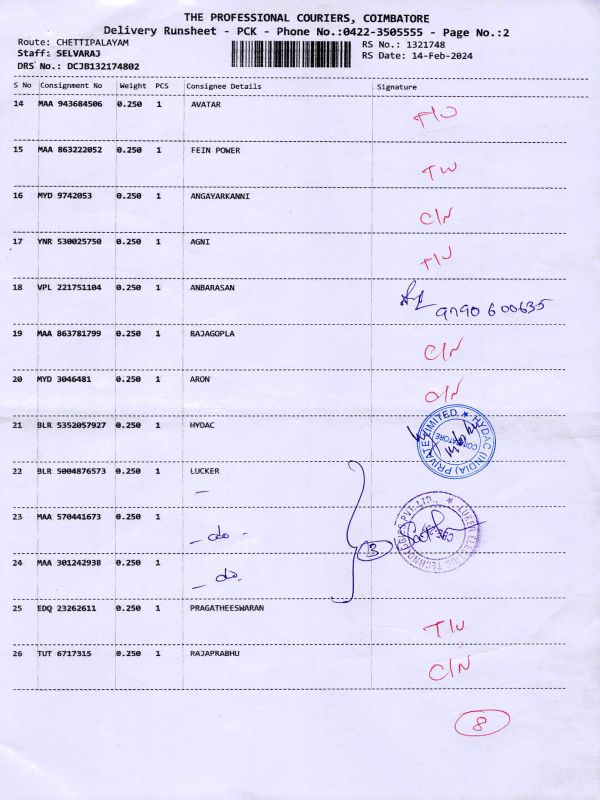 THE PROFESSIONAL COURIERS, COIMBATORE
Delivery Runsheet - PCK - Phone No.:0422-3505555 - Page No.:2
Route: CHETTIPALAYAM
RS No.: 1321748
Staff: SELVARAJ
RS Date: 14-Feb-2024
DRS No.: DCJB132174802
S No Consignment No Weight PCS Consignee Details Signature
14 MAA 943684506 0.250 1 AVATAR
15 MAA 863222052 0.250 1 FEIN POWER
16 MYD 9742053 0.250 1 ANGAYARKANNI C/N
17 YNR 530025750 0.250 1 AGNI
18 VPL 221751104 0.250 1 ANBARASAN
9790600635
19 MAA 863781799 0.250 1 RAJAGOPLA C/N
20 MYD 3046481 0.250 1 ARON
21 BLR 5352057927 0.250 1 HYDAC HYDAC (INDIA) PRIVATE LIMITED. COIMBATORE
22 BLR 5004876573 0.250 1 LUCKER
23 MAA 570441673 0.250 1 - do -
3
24 MAA 301242938 0.250 1 - do.
25 EDQ 23262611 0.250 1 PRAGATHEESWARAN
26 TUT 6717315 0.250 1 RAJAPRABHU C/N
8